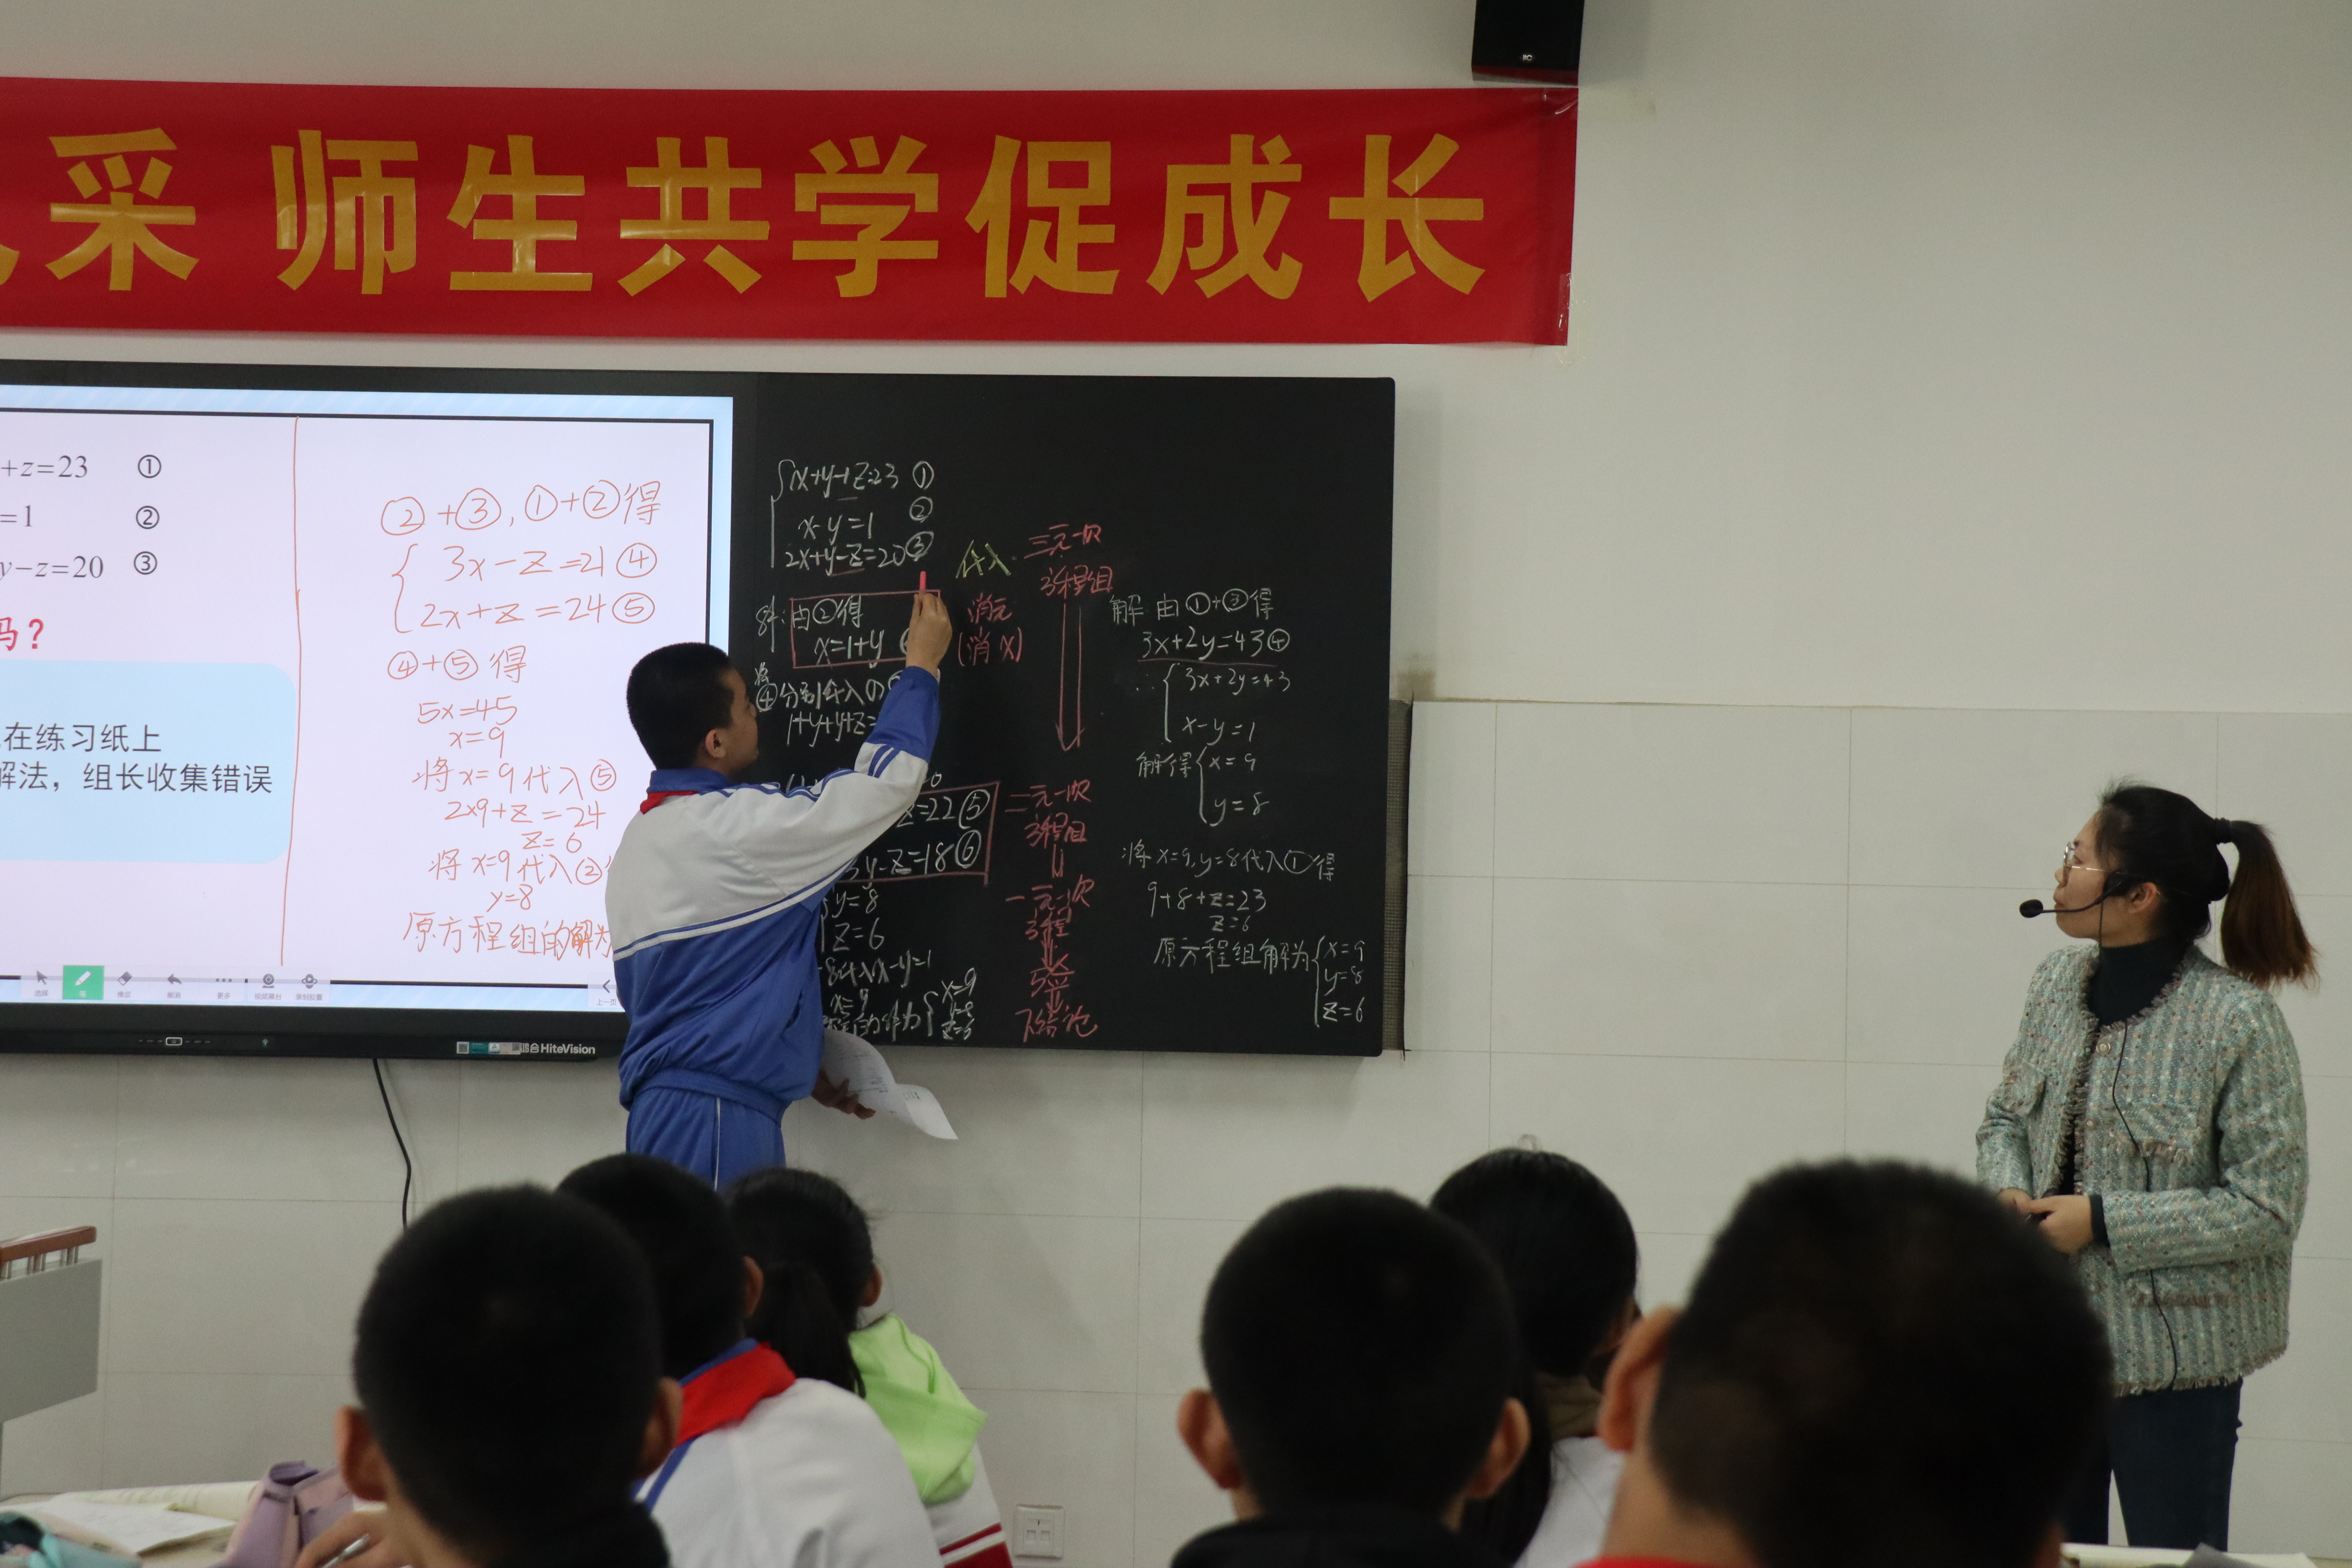 采 师生共学促成长
+z=23 ①
=1 ②
y−z=20 ③
吗？
在练习纸上
解法，组长收集错误
②+③,①+②得
3x-z=21④
2x+z=24⑤
④+⑤得
5x=45
x=9
将x=9代入⑤
2×9+z=24
z=6
将x=9代入②
y=8
原方程组的解为
选择 笔 橡皮 撤消 更多
上一页
HiteVision
x+y+z=23 ①
x-y=1 ②
2x+y-z=20③
解:由②得
x=1+y
将④分别代入①
1+y+y+z=
z=22⑤
3y-z=18⑥
y=8
z=6
代入x-y=1
x=9
x=9
y=8
z=6
代入
消元
(消x)
三元一次
方程组
二元一次
方程组
一元一次
方程
下结论
解 由①+③得
3x+2y=43④
∴ 3x+2y=43
x-y=1
解得 x=9
y=8
将x=9,y=8代入①得
9+8+z=23
z=6
原方程组解为 x=9
y=8
z=6